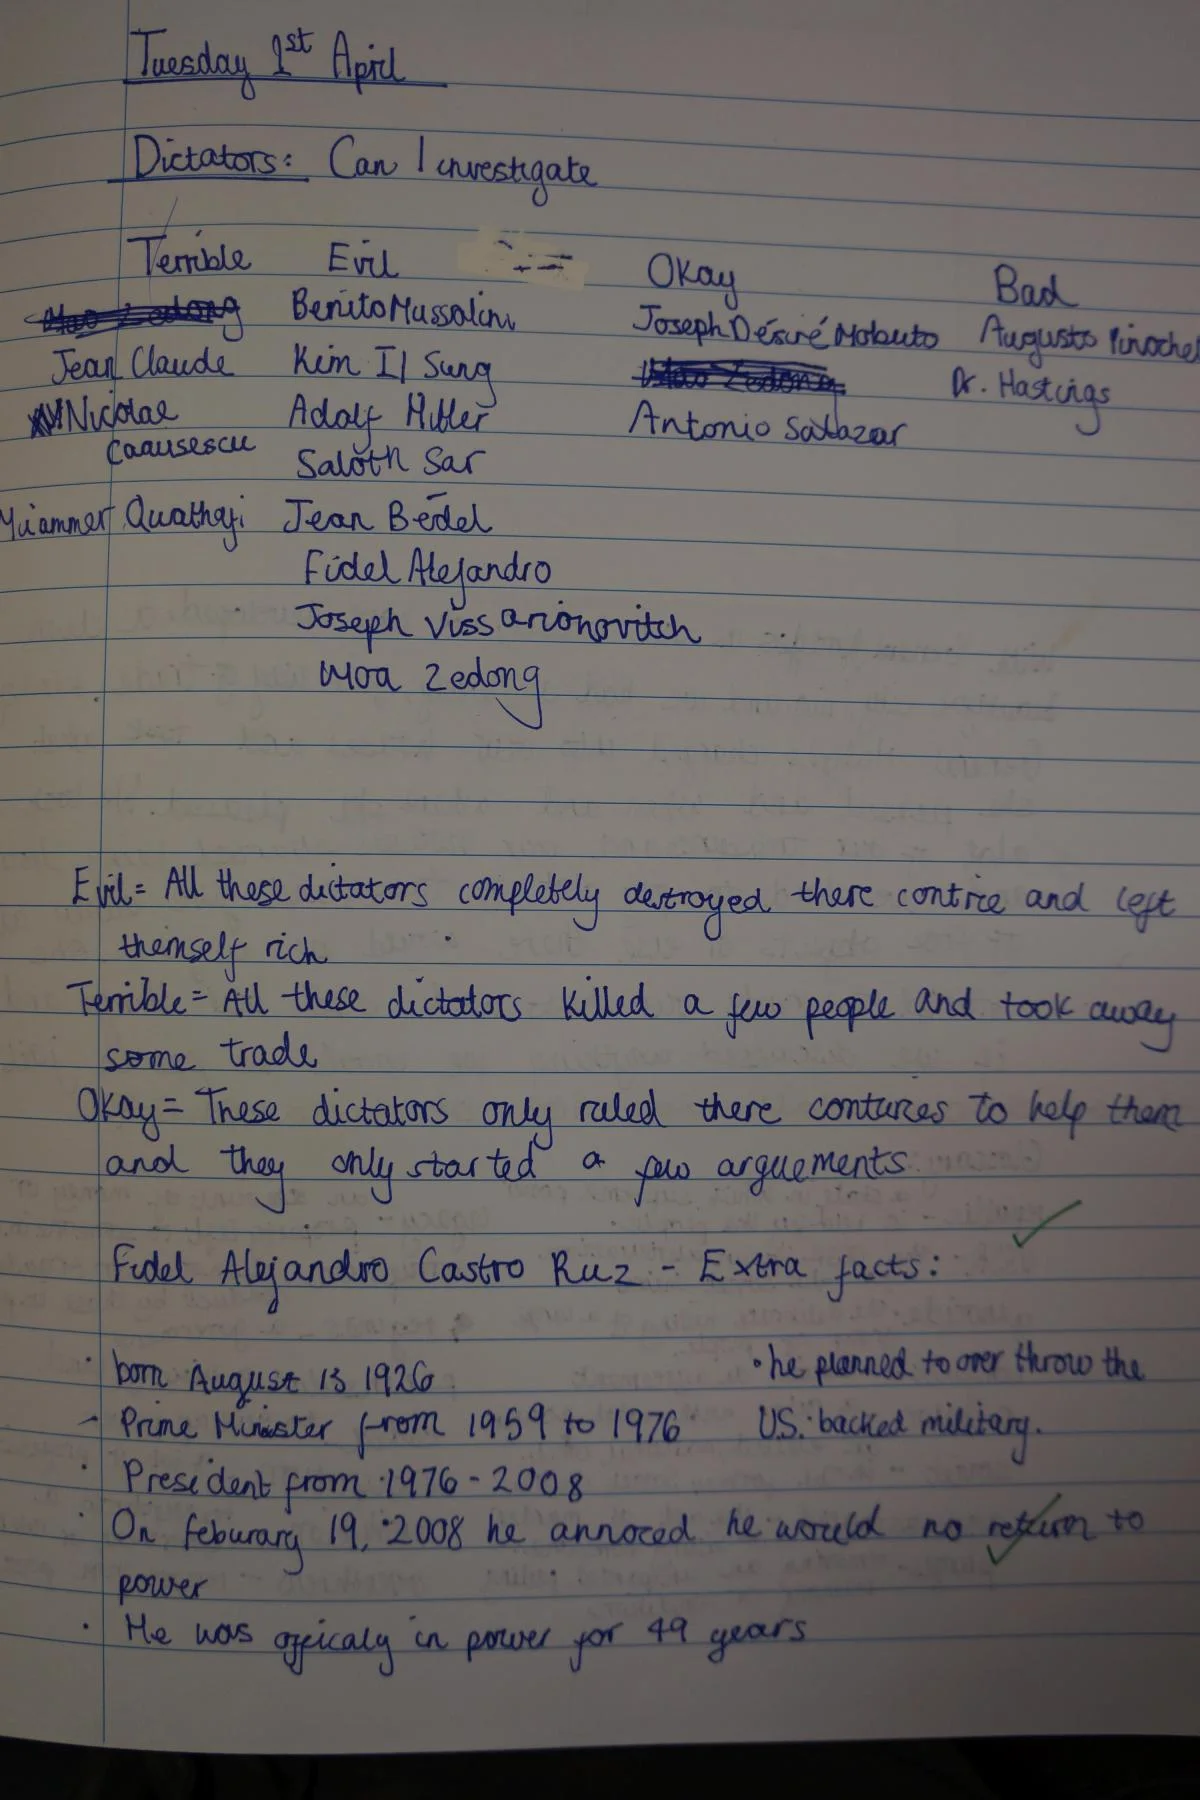 Tuesday 1st April
Dictators: Can I investigate
Terrible Evil Okay Bad
Mao Zedong Benito Mussolini Joseph Désiré Mobuto Augusto Pinochet
Jean Claude Kim Il Sung Mao Zedong Dr. Hastings
Nicolae Adolf Hitler Antonio Salazar
Caausescu Saloth Sar
Mu'ammer Quathafi Jean Bedel
Fidel Alejandro
Joseph Vissarionovitch
Moa Zedong
Evil = All these dictators completely destroyed there contrie and left
themself rich
Terrible = All these dictators killed a few people and took away
some trade
Okay = These dictators only ruled there contures to help them
and they only started a few arguements
Fidel Alejandro Castro Ruz - Extra facts:
· born August 13 1926 · he planned to over throw the
- Prime Minister from 1959 to 1976 U.S. backed military.
· President from 1976 - 2008
· On feburary 19, 2008 he annoced he would no return to
power
· He was officaly in power for 49 years